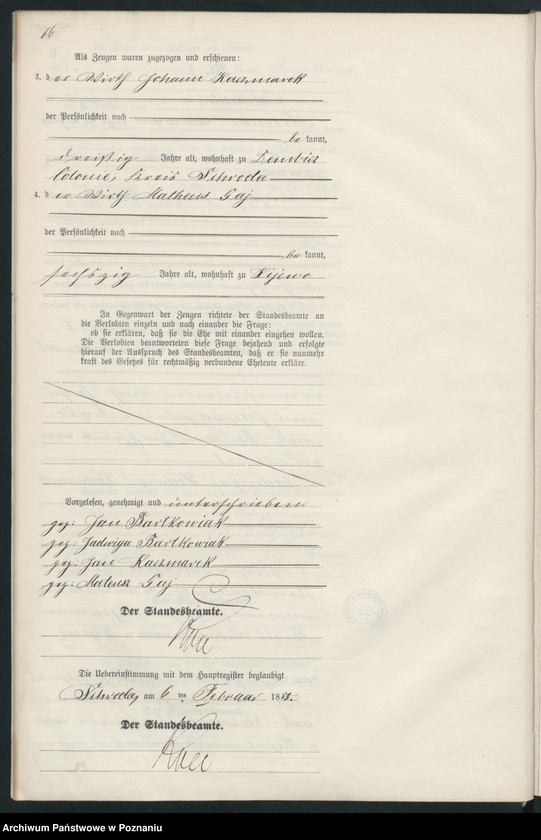 16
Als Zeugen waren zugezogen und erschienen:
3. der Wirth Johann Kaczmarek
der Persönlichkeit nach
bekannt,
dreißig Jahre alt, wohnhaft zu Dembicz
Colonie, Kreis Schroda
4. der Wirth Matheus Gaj
der Persönlichkeit nach
bekannt,
sechszig Jahre alt, wohnhaft zu Kijewo
In Gegenwart der Zeugen richtete der Standesbeamte an
die Verlobten einzeln und nach einander die Frage:
ob sie erklären, daß sie die Ehe mit einander eingehen wollen.
Die Verlobten beantworteten diese Frage bejahend und erfolgte
hierauf der Ausspruch des Standesbeamten, daß er sie nunmehr
kraft des Gesetzes für rechtmäßig verbundene Eheleute erkläre.
Vorgelesen, genehmigt und unterschrieben
gez: Jan Bartkowiak
gez: Jadwiga Bartkowiak
gez: Jan Kaczmarek
gez: Mateusz Gaj
Der Standesbeamte.
Die Uebereinstimmung mit dem Hauptregister beglaubigt
Schroda, am 6 ten Februar 188
Der Standesbeamte.
Archiwum Państwowe w Poznaniu